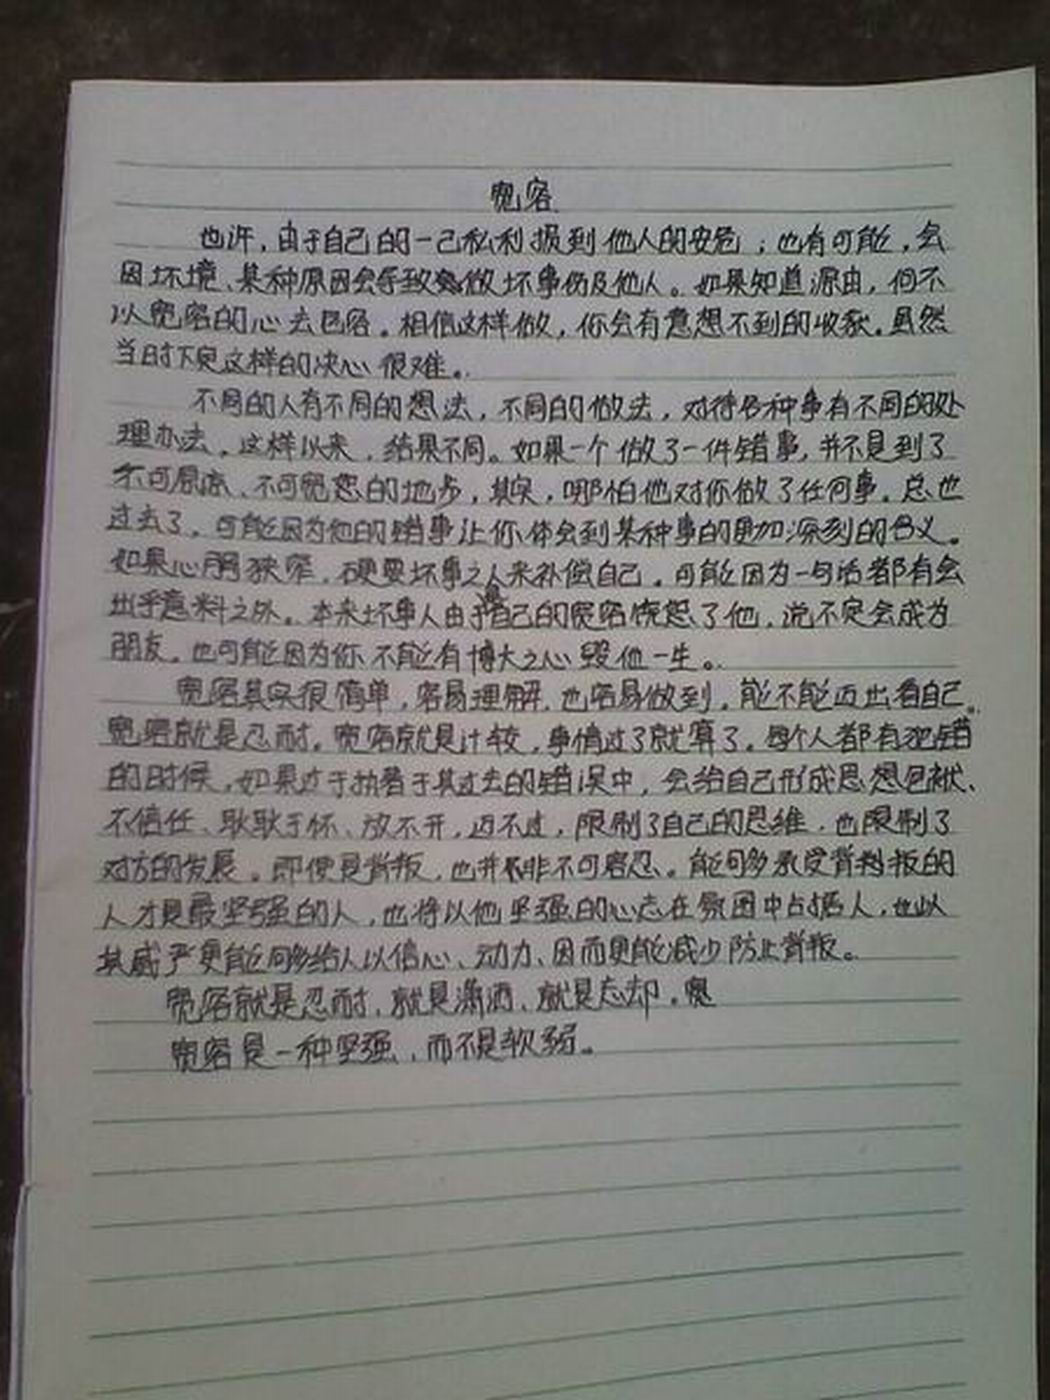 宽容
也许，由于自己的一己私利损到他人的安危；也有可能，会
因坏境、某种原因会导致做坏事伤及他人。如果知道源由，何不
以宽容的心去包容。相信这样做，你会有意想不到的收获。虽然
当时下定这样的决心很难。
不同的人有不同的想法，不同的做法，对待各种事有不同的处
理办法。这样以来，结果不同。如果一个做了一件错事，并不是到了
不可原谅、不可宽恕的地步，其实，哪怕他对你做了任何事。总也
过去了。可能因为他的错事让你体会到某种事的更加深刻的含义。
如果心胸狭窄，硬要坏事之人来补偿自己。可能因为一句话都有会
出乎意料之外。本来坏事人由于自己的宽容饶恕了他，说不定会成为
朋友。也可能因为你不能有博大之心毁他一生。
宽容其实很简单，容易理解，也容易做到，能不能迈出看自己。
宽容就是忍耐。宽容就是计较，事情过了就算了。每个人都有犯错
的时候，如果过于执着于其过去的错误中，会给自己形成思想包袱、
不信任、耿耿于怀、放不开，迈不过，限制了自己的思维，也限制了
对方的发展。即使是背叛，也并非不可容忍。能够承受背叛的
人才是最坚强的人，也将以他坚强的心志在氛围中占据人，也以
其威严更能够给人以信心、动力、因而更能减少防止背叛。
宽容就是忍耐，就是潇洒，就是忘却。
宽容是一种坚强，而不是软弱。